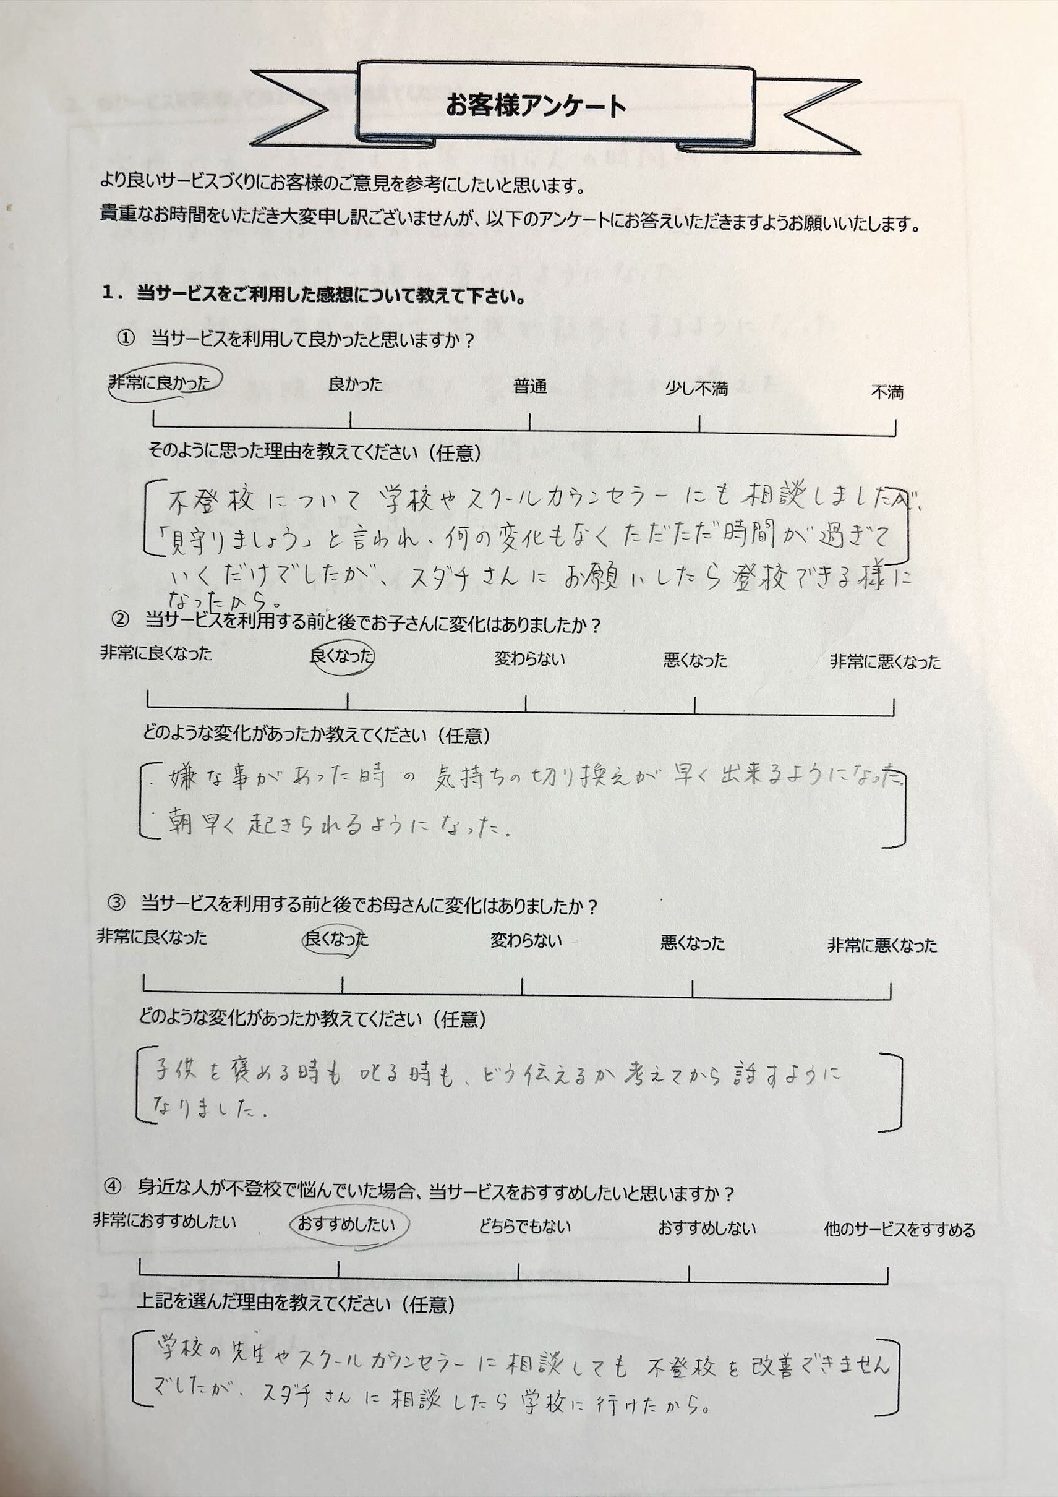 お客様アンケート
より良いサービスづくりにお客様のご意見を参考にしたいと思います。
貴重なお時間をいただき大変申し訳ございませんが、以下のアンケートにお答えいただきますようお願いいたします。
1. 当サービスをご利用した感想について教えて下さい。
① 当サービスを利用して良かったと思いますか？
非常に良かった 良かった 普通 少し不満 不満
そのように思った理由を教えてください（任意）
不登校について学校やスクールカウンセラーにも相談しましたが、
「見守りましょう」と言われ、何の変化もなくただただ時間が過ぎて
いくだけでしたが、スダチさんにお願いしたら登校できる様に
なったから。
② 当サービスを利用する前と後でお子さんに変化はありましたか？
非常に良くなった 良くなった 変わらない 悪くなった 非常に悪くなった
どのような変化があったか教えてください（任意）
・嫌な事があった時の気持ちの切り換えが早く出来るようになった。
・朝早く起きられるようになった。
③ 当サービスを利用する前と後でお母さんに変化はありましたか？
非常に良くなった 良くなった 変わらない 悪くなった 非常に悪くなった
どのような変化があったか教えてください（任意）
子供を褒める時も叱る時も、どう伝えるか考えてから話すように
なりました。
④ 身近な人が不登校で悩んでいた場合、当サービスをおすすめしたいと思いますか？
非常におすすめしたい おすすめしたい どちらでもない おすすめしない 他のサービスをすすめる
上記を選んだ理由を教えてください（任意）
学校の先生やスクールカウンセラーに相談しても不登校を改善できません
でしたが、スダチさんに相談したら学校に行けたから。